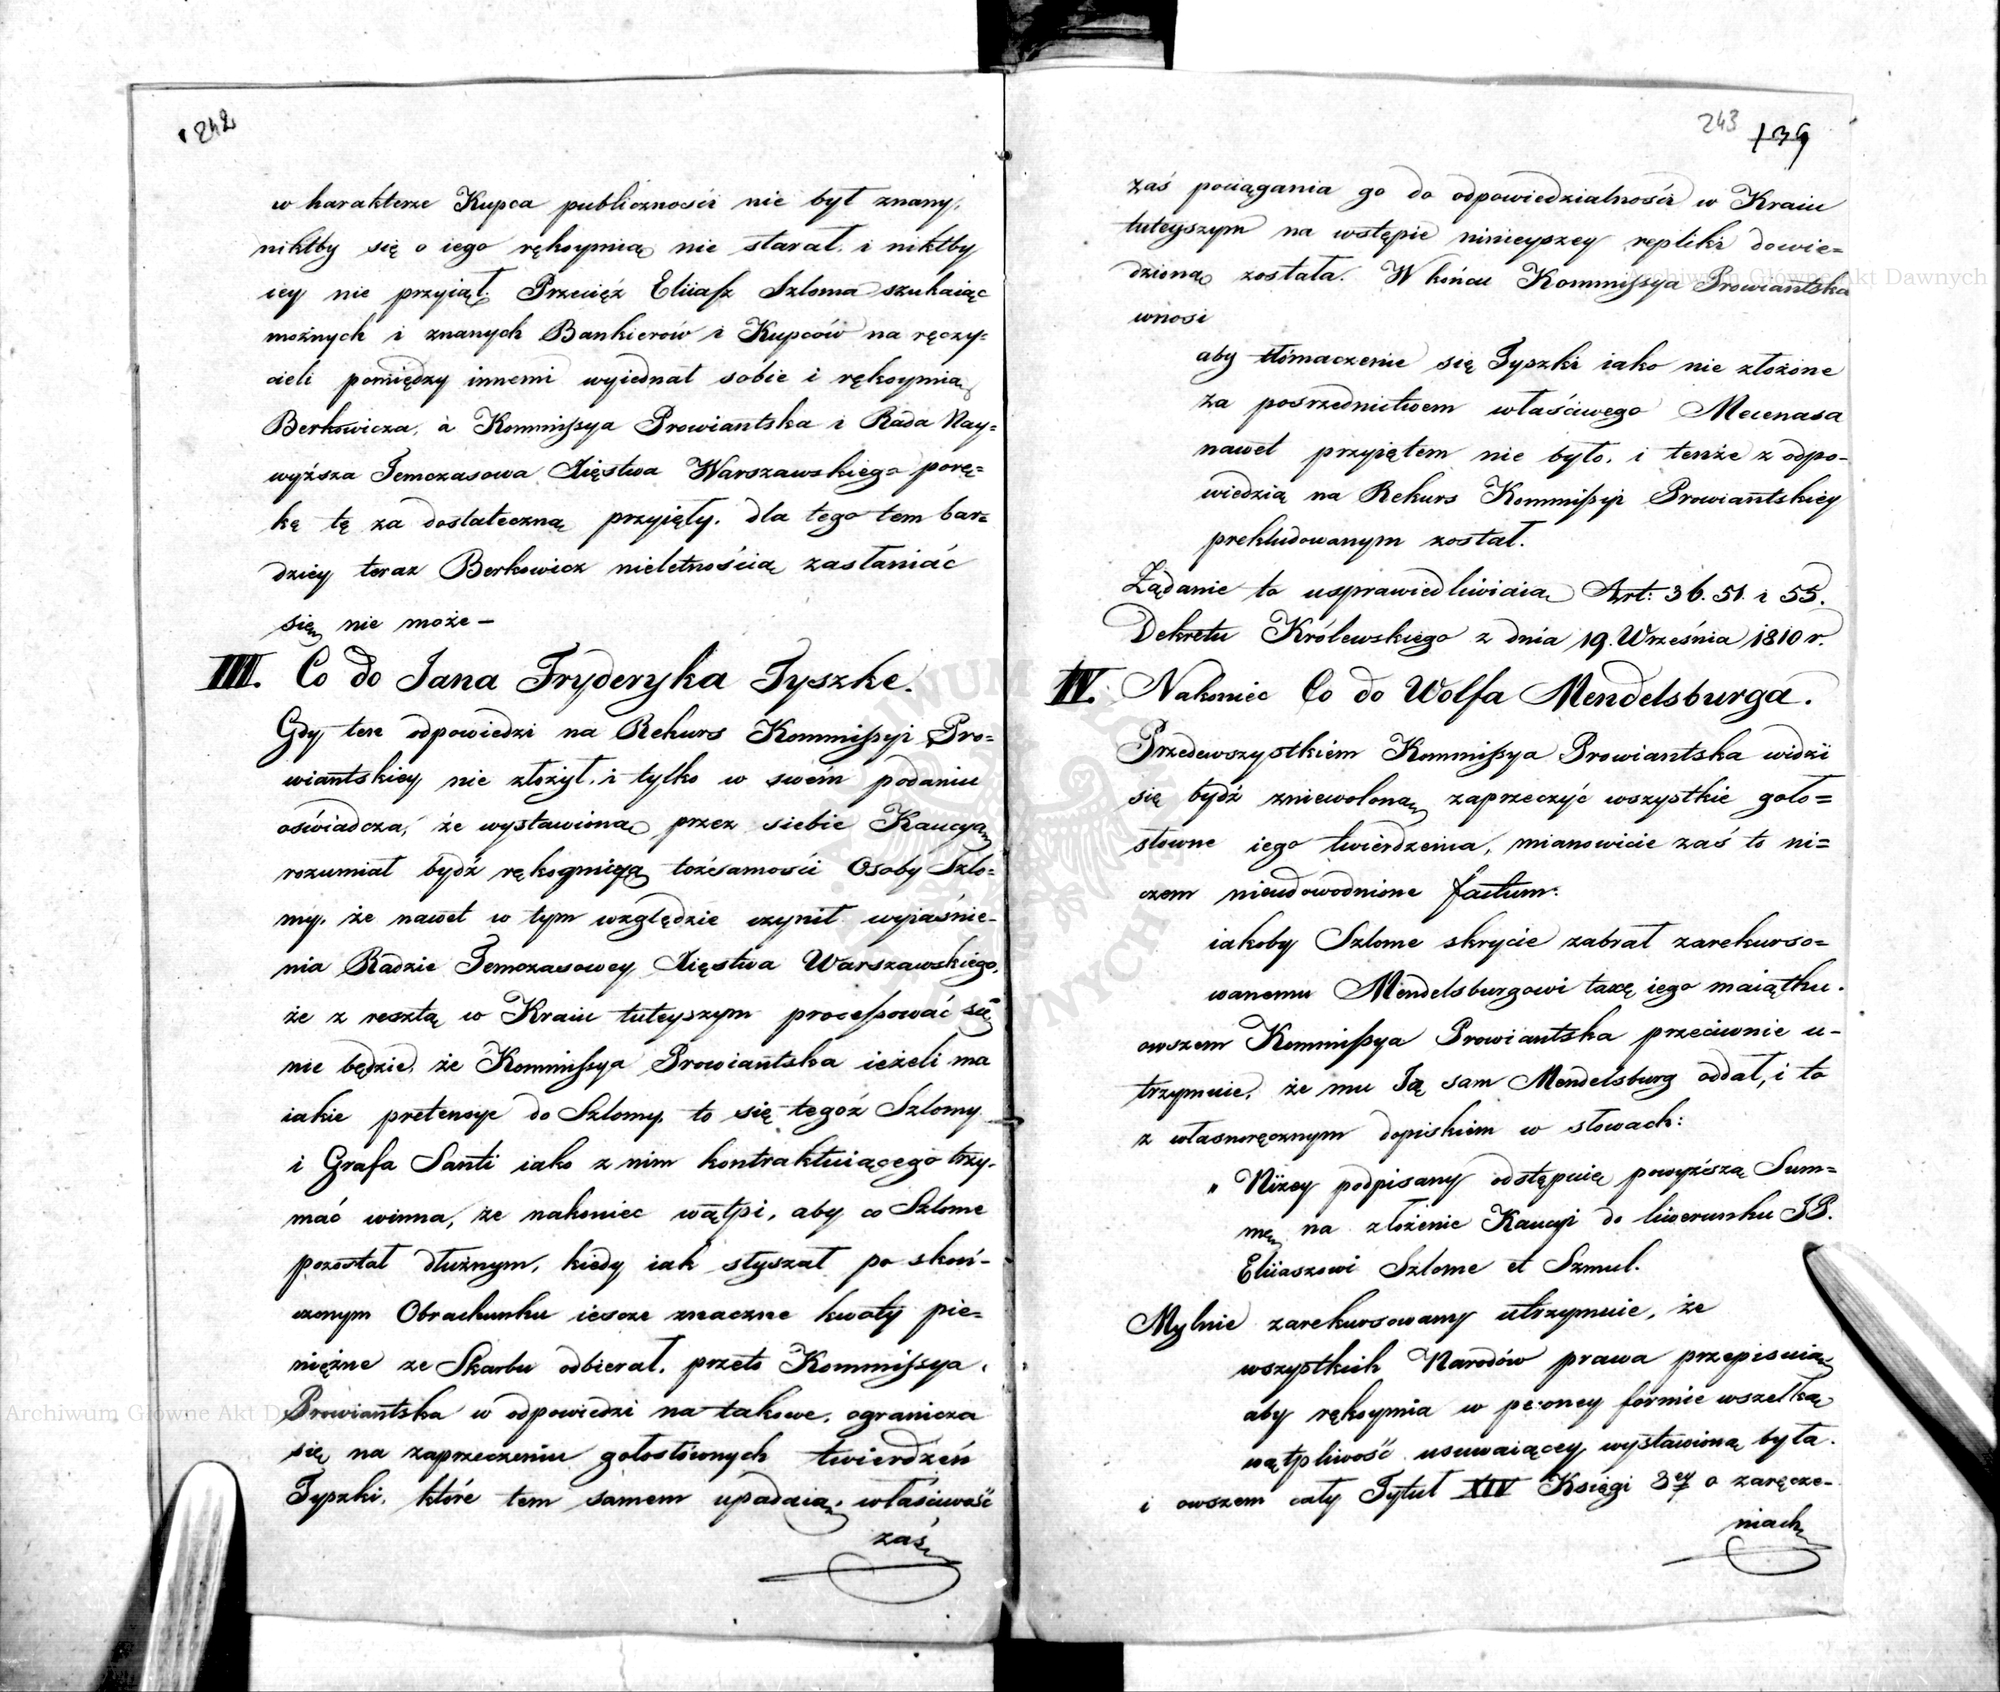 242
w harakterze Kupca publiczności nie był znany,
niktby się o iego rękoymią nie starał, i niktby
iey nie przyiął. Przecięż Eliiasz Szloma szukaiąc
możnych i znanych Bankierów i Kupców na ręczy=
cieli pomiędzy innemi wyiednał sobie i rękoymią
Berkowicza, à Kommissya Prowiantska i Rada Nay=
wyższa Temczasowa Xięstwa Warszawskiego porę=
kę tę za dostateczną przyięły, dla tego tem bar=
dziey teraz Berkowicz nieletnością zasłaniać
się nie może –
III. Co do Jana Fryderyka Tyszke.
Gdy ten odpowiedzi na Rekurs Kommissyi Pro=
wiantskiey nie złożył, i tylko w swem podaniu
oświadcza, że wystawioną przez siebie Kaucyą
rozumiał bydź rękogniyą tożsamości Osoby Szlo=
my, że nawet w tym względzie czynił wyiaśnie=
nia Radzie Temczasowey Xięstwa Warszawskiego,
że z resztą w Kraiu tuteyszym processować się
nie będzie, że Kommissya Prowiantska ieżeli ma
iakie pretensye do Szlomy, to się tegoż Szlomy
i Grafa Santi iako z nim kontraktuiącego trzy=
mać winna, że nakoniec wątpi, aby co Szlome
pozostał dłużnym, kiedy iak słyszał po skoń=
czonym Obrachunku ieszcze znaczne kwoty pie=
niężne ze Skarbu odbierał, przeto Kommissya
Prowiantska w odpowiedzi na takowe, ogranicza
się na zaprzeczeniu gołosłównych twierdzeń
Tyszki, które tem samem upadaią, właściwość
zaś
243 139
zaś pociągania go do odpowiedzialności w Kraiu
tuteyszym na wstępie ninieyszey repliki dowie=
dzioną została. W końcu Kommissya Prowiantska
wnosi
aby tłómaczenie się Tyszki iako nie złożone
za posrzednictwem właściwego Mecenasa
nawet przyiętem nie było, i tenże z odpo=
wiedzią na Rekurs Kommissyi Prowiantskiey
prekludowanym został.
Żądanie to usprawiedliwiaią Art: 36. 51. i 55.
Dekretu Królewskiego z dnia 19. Września 1810 r.
IV. Nakoniec Co do Wolfa Mendelsburga.
Przedewszystkiem Kommissya Prowiantska widzi
się bydź zniewoloną zaprzeczyć wszystkie goło=
słowne iego twierdzenia, mianowicie zaś to ni=
czem nieudowodnione factum:
iakoby Szlome skrycie zabrał zarekurso=
wanemu Mendelsburgowi taxę iego maiątku.
owszem Kommissya Prowiantska przeciwnie u=
trzymuie, że mu Ią sam Mendelsburg oddał, i to
z własnoręcznym dopiskiem w słowach:
„ Niżey podpisany odstępuię powyższą Sum=
mę na złożenie Kaucyi do liwerunku JP.
Eliiaszowi Szlome et Szmul.
Mylnie zarekursowamy utrzymuie, że
wszystkich Narodów prawa przepisuią
aby rękoymia w pewney formie wszelką
wątpliwość usuwaiącey wystawioną była.
i owszem cały Tytuł XIV Księgi 3ey o zaręcze=
niach
Archiwum Główne Akt Dawnych
Archiwum Główne Akt Dawnych